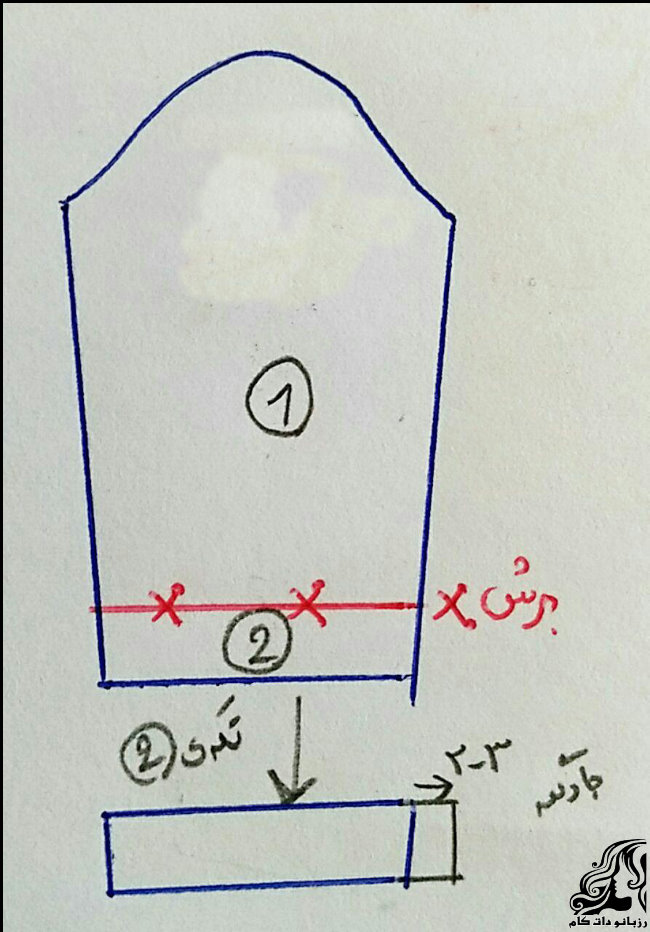 1
برش
2
تکه‌ی 2
۲-۳
جادکمه
رزبانو دات کام